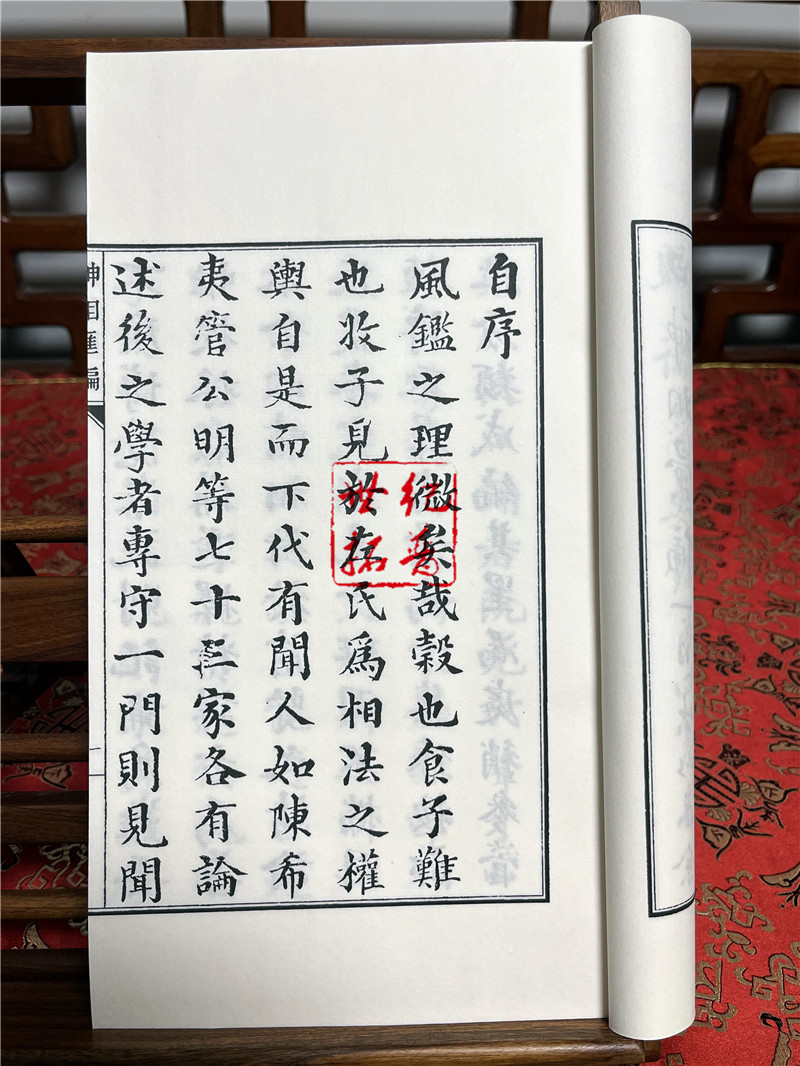 自序
風鑑之理微矣哉穀也食子難
也收子見於左氏爲相法之權
輿自是而下代有聞人如陳希
夷管公明等七十三家各有論
述後之學者專守一門則見聞
神相匯編